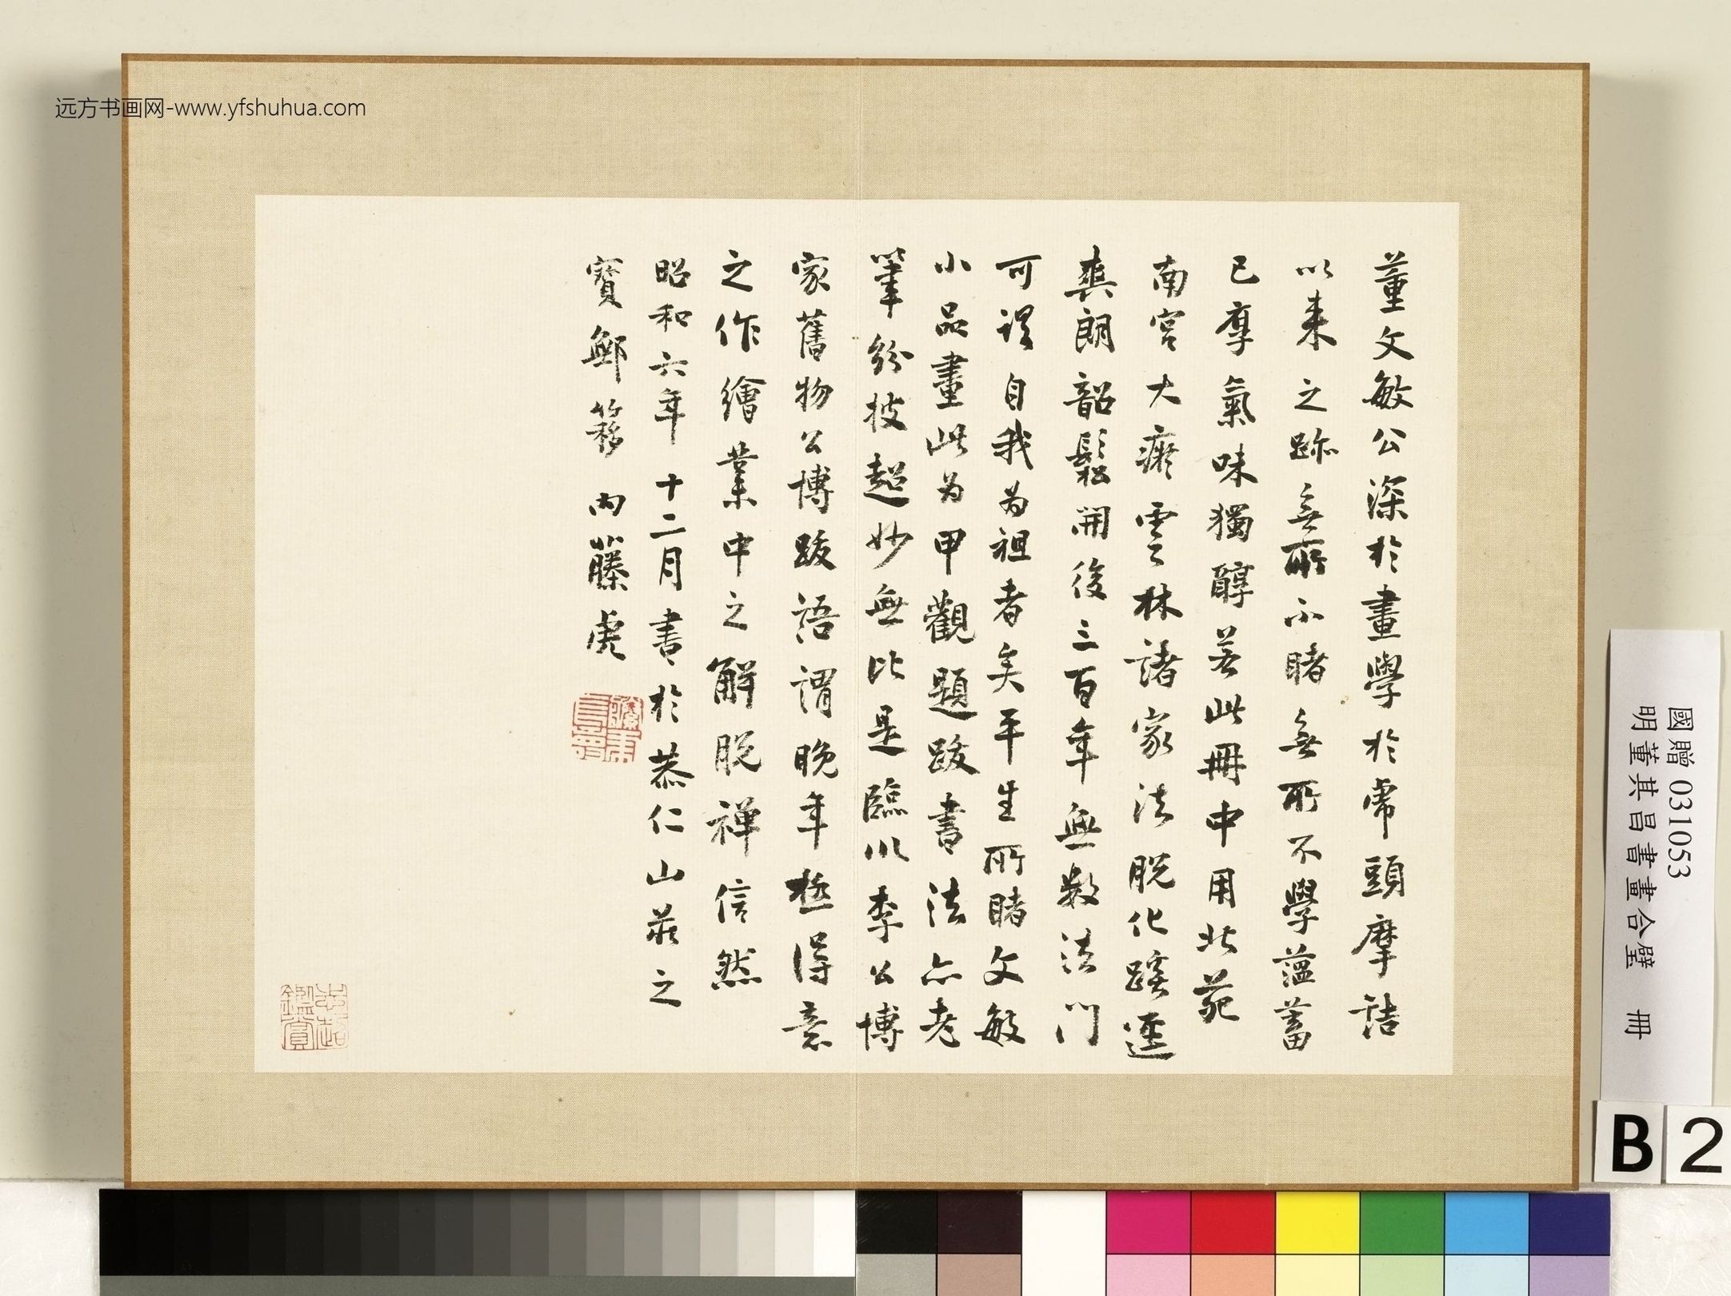 董文敏公深於畫學於常頭摩詰
以来之跡無所不睹無所不學薀蓄
已厚氣味獨醇若此冊中用北苑
南宮大癡雲林諸家法脱化蹊逕
爽朗韶鬆開後三百年無数法門
可謂自我為祖者矣平生所睹文敏
小品畫此为甲觀題跋書法亦老
筆紛披超妙無比是臨川李公博
家舊物公博跋語謂晚年極得意
之作繪業中之解脱禅信然
昭和六年十二月書於恭仁山莊之
寶鄦簃 内藤虎
忠超鑑賞
远方书画网-www.yfshuhua.com
國贈 031053
明董其昌書畫合璧 冊
B 2